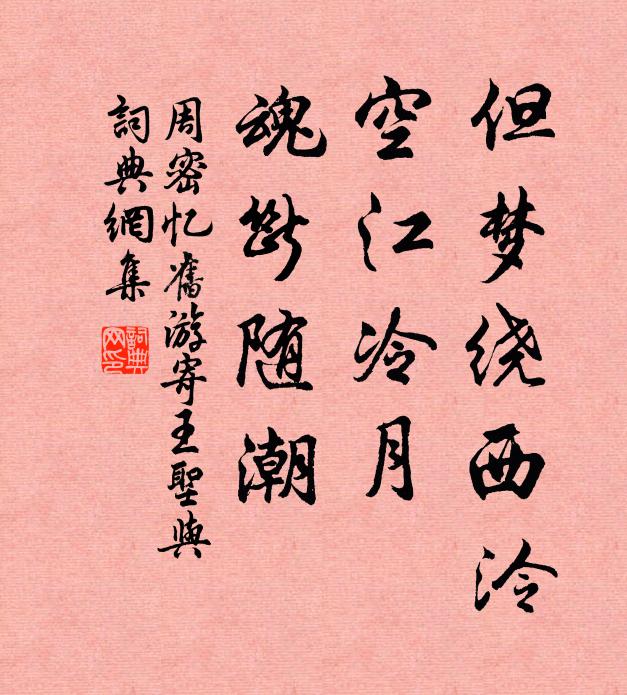 但梦绕西泠
空江冷月
魂断随潮
周密忆旧游寄王聖與
詞典網集
詞典网印